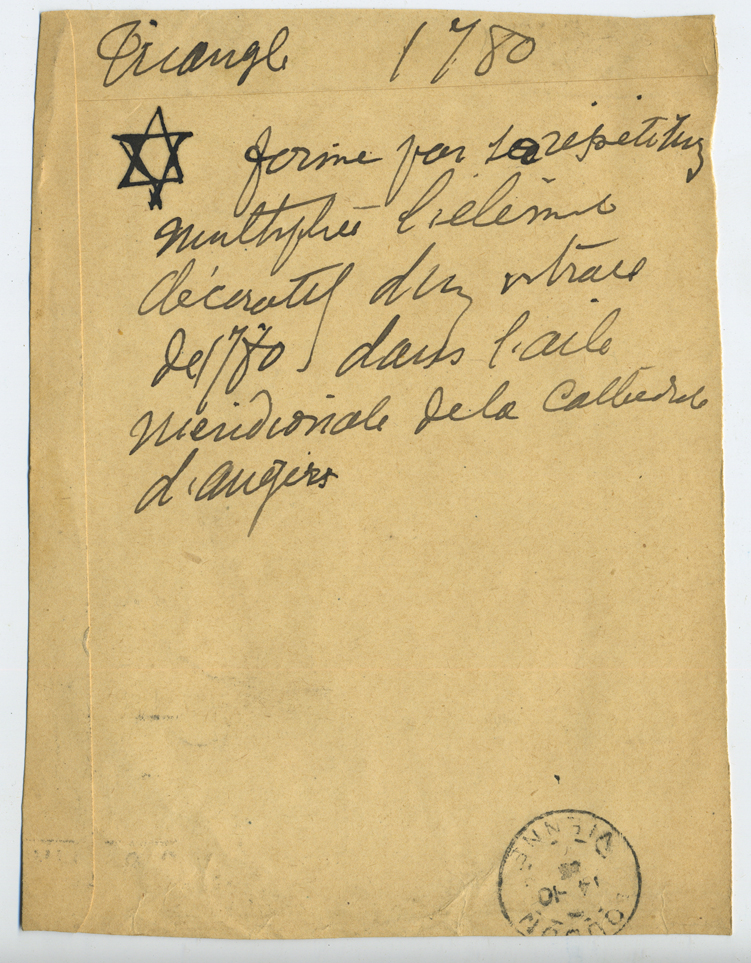 Triangle 1780
forme par sa répétition
multipliée l'élément
décoratif d'un vitrail
de 1780 dans l'aile
méridionale de la Cathédrale
d'angers
VIENNE
LOUDUN